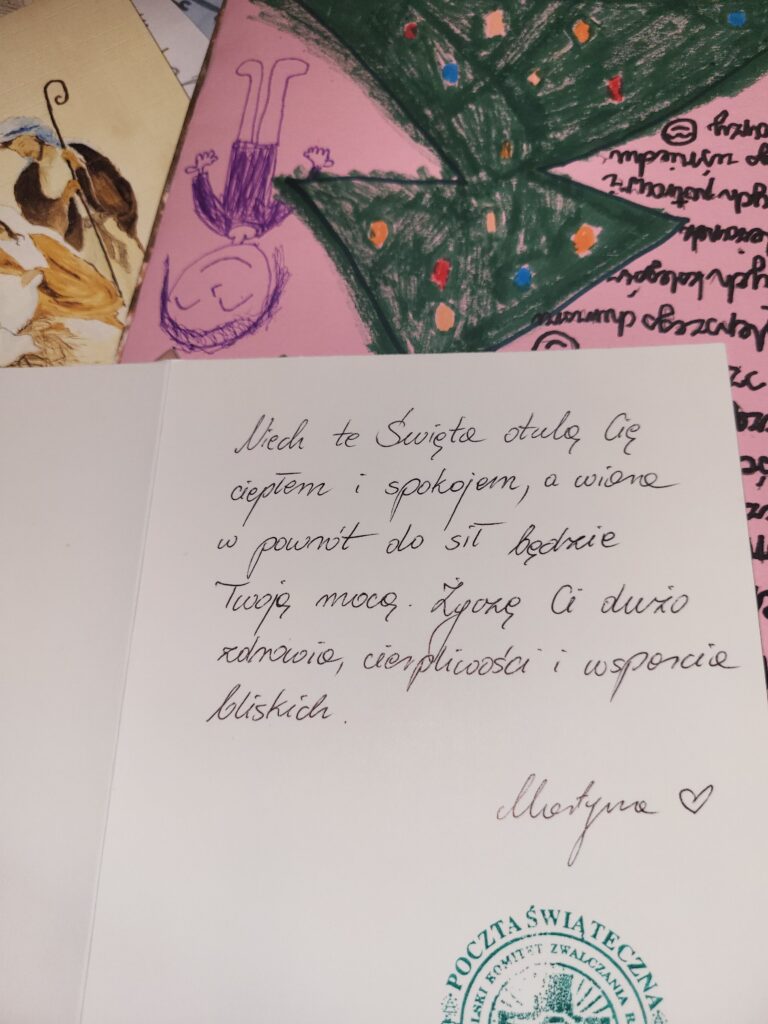 Niech te Święta otulą Cię
ciepłem i spokojem, a wiara
w powrót do sił będzie
Twoją mocą. Życzę Ci dużo
zdrowia, cierpliwości i wsparcia
bliskich.
Martyna ♡
POCZTA ŚWIĄTECZNA
LSKI KOMITET ZWALCZANIA R
kolegów
potraw z
uśmiechu